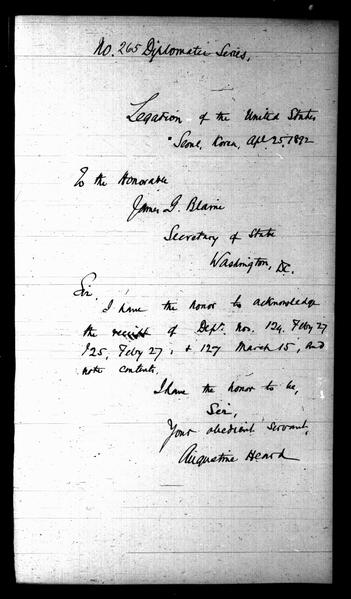 No. 265 Diplomatic Series.
Legation of the United States
Seoul, Korea, Apl. 25, 1892
To the Honorable
James G. Blaine
Secretary of State
Washington, D.C.
Sir,
I have the honor to acknowledge
the receipt of Dept. Nos. 124, Feby 27
125, Feby 27, & 127 March 15, and
note contents.
I have the honor to be,
Sir,
Your obedient servant,
Augustine Heard